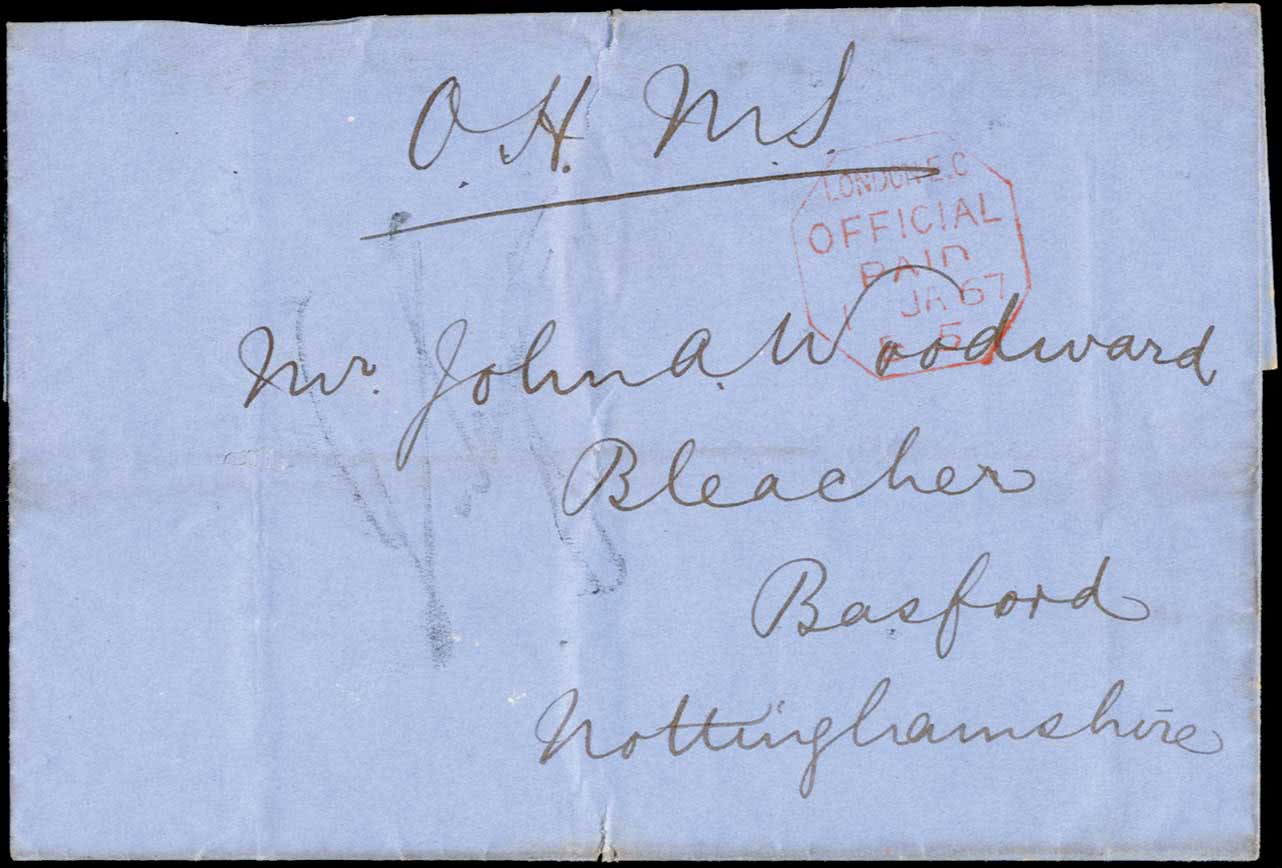 O.H.M.S.
LONDON E.C
OFFICIAL
PAID
JA 67
Mr. John A. Woodward
Bleacher
Basford
Nottinghamshire